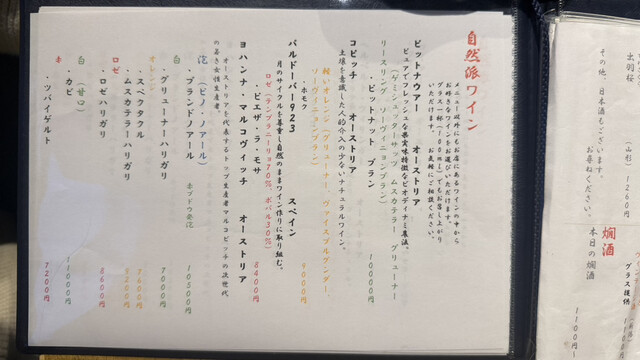 出羽桜
(山形) 1260円
その他、日本酒もございます。
お尋ねください。
燗酒
本日の燗酒
グラス提供
1100円~
自然派ワイン
メニュー以外にもお店にあるワインの中から
お好きなワインをお選びいただけます。
グラス一杯(100ml)でもお召し上がり
いただけます。 お気軽にご相談ください。
ピットナウアー オーストリア
ピュアでフレッシュな果実味特徴なビオディナミ農法。
(ゲミシュッターサッツ ムスカテラー グリューナー
リースリング ソーヴィニョンブラン)
・ピットナット ブラン 10000円
コビッチ オーストリア
土壌を意識した人的介入の少ないナチュラルワイン。
軽いオレンジ(グリューナー、ヴァイスブルグンダー、
ソーヴィニョンブラン)
・ホモク 9000円
パルドーバー923 スペイン
月のサイクルを尊重し自然のままワイン作りに取り組む。
ロゼ(テンプラニーリョ70%、ボバル30%)
・ピエザ・ラ・モサ 8400円
ヨハンナ・マルコヴィッチ オーストリア
オーストリアを代表するトップ生産者マルコビッチの次世代
の若き女性生産者。
泡(ピノ・ノアール) 赤ブドウ発泡
・ブランドノアール 10500円
白
・グリューナーハリガリ 7000円
オレンジ
・スペクタクル 7600円
・ムスカテラーハリガリ 8200円
ロゼ
・ロゼハリガリ 8600円
白(甘口)
・カビ 11000円
赤
・ツバイゲルト 7200円